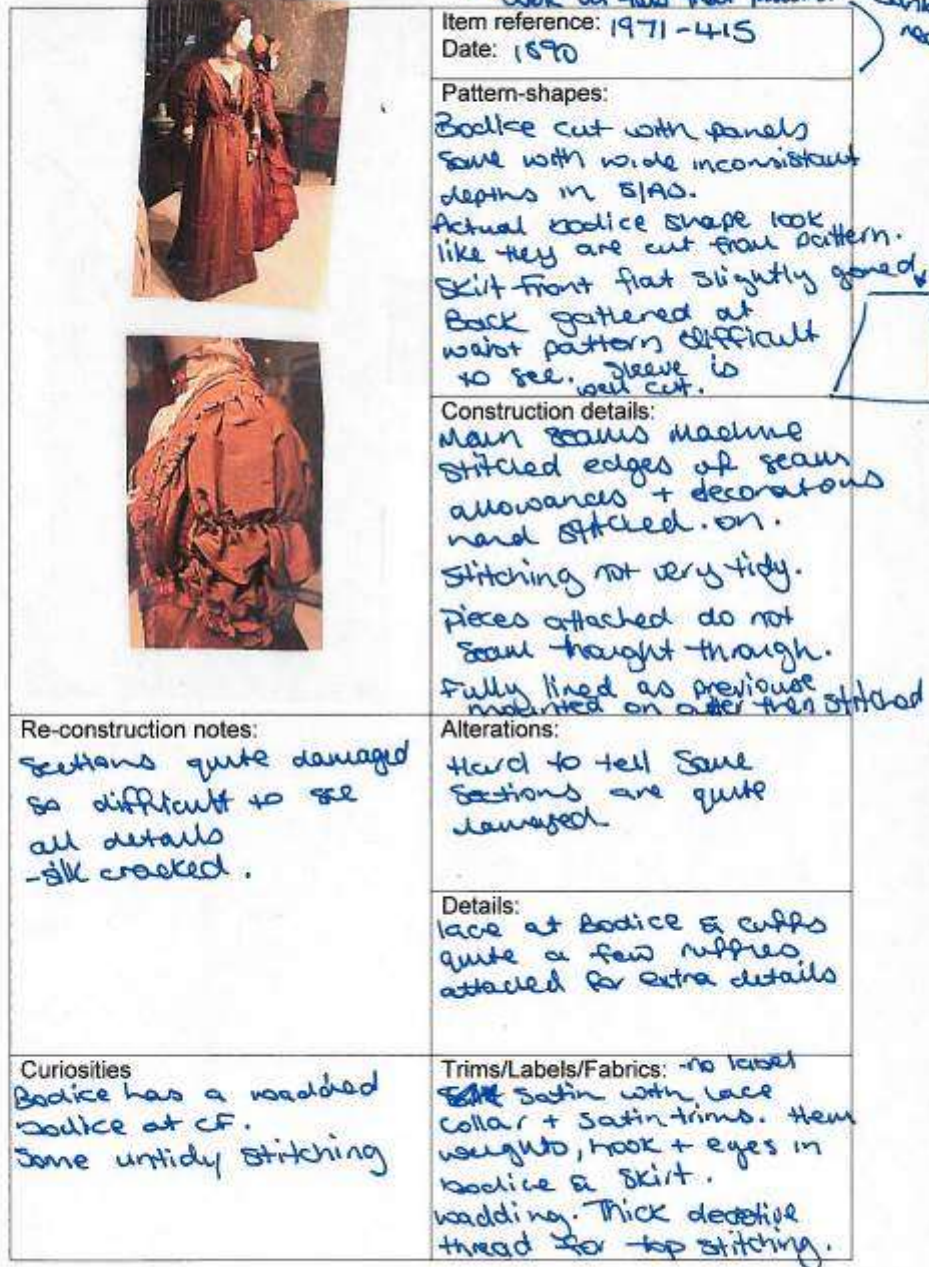 Item reference: 1971-415
Date: 1890
Pattern-shapes:
Bodice cut with panels
some with wide inconsistant
depths in S/AS.
Actual bodice shape look
like they are cut from pattern.
Skirt front flat slightly gored
Back gathered at
waist pattern difficult
to see. Sleeve is
well cut.
Construction details:
Main seams machine
stitched edges of seam
allowances + decorations
hand stitched on.
Stitching not very tidy.
Pieces attached do not
seam thought through.
Fully lined as previouse
mounted on outer then stitched
Re-construction notes:
Sections quite damaged
so difficult to see
all details
-silk cracked.
Alterations:
Hard to tell Some
Sections are quite
damaged
Details:
lace at Bodice & cuffs
quite a few ruffles
attached for extra details
Curiosities
Bodice has a wadded
bodice at CF.
Some untidy stitching
Trims/Labels/Fabrics: -no label
Satin with lace
collar + Satin trims. Hem
weights, hook + eyes in
bodice & Skirt.
wadding. Thick
thread for top stitching.